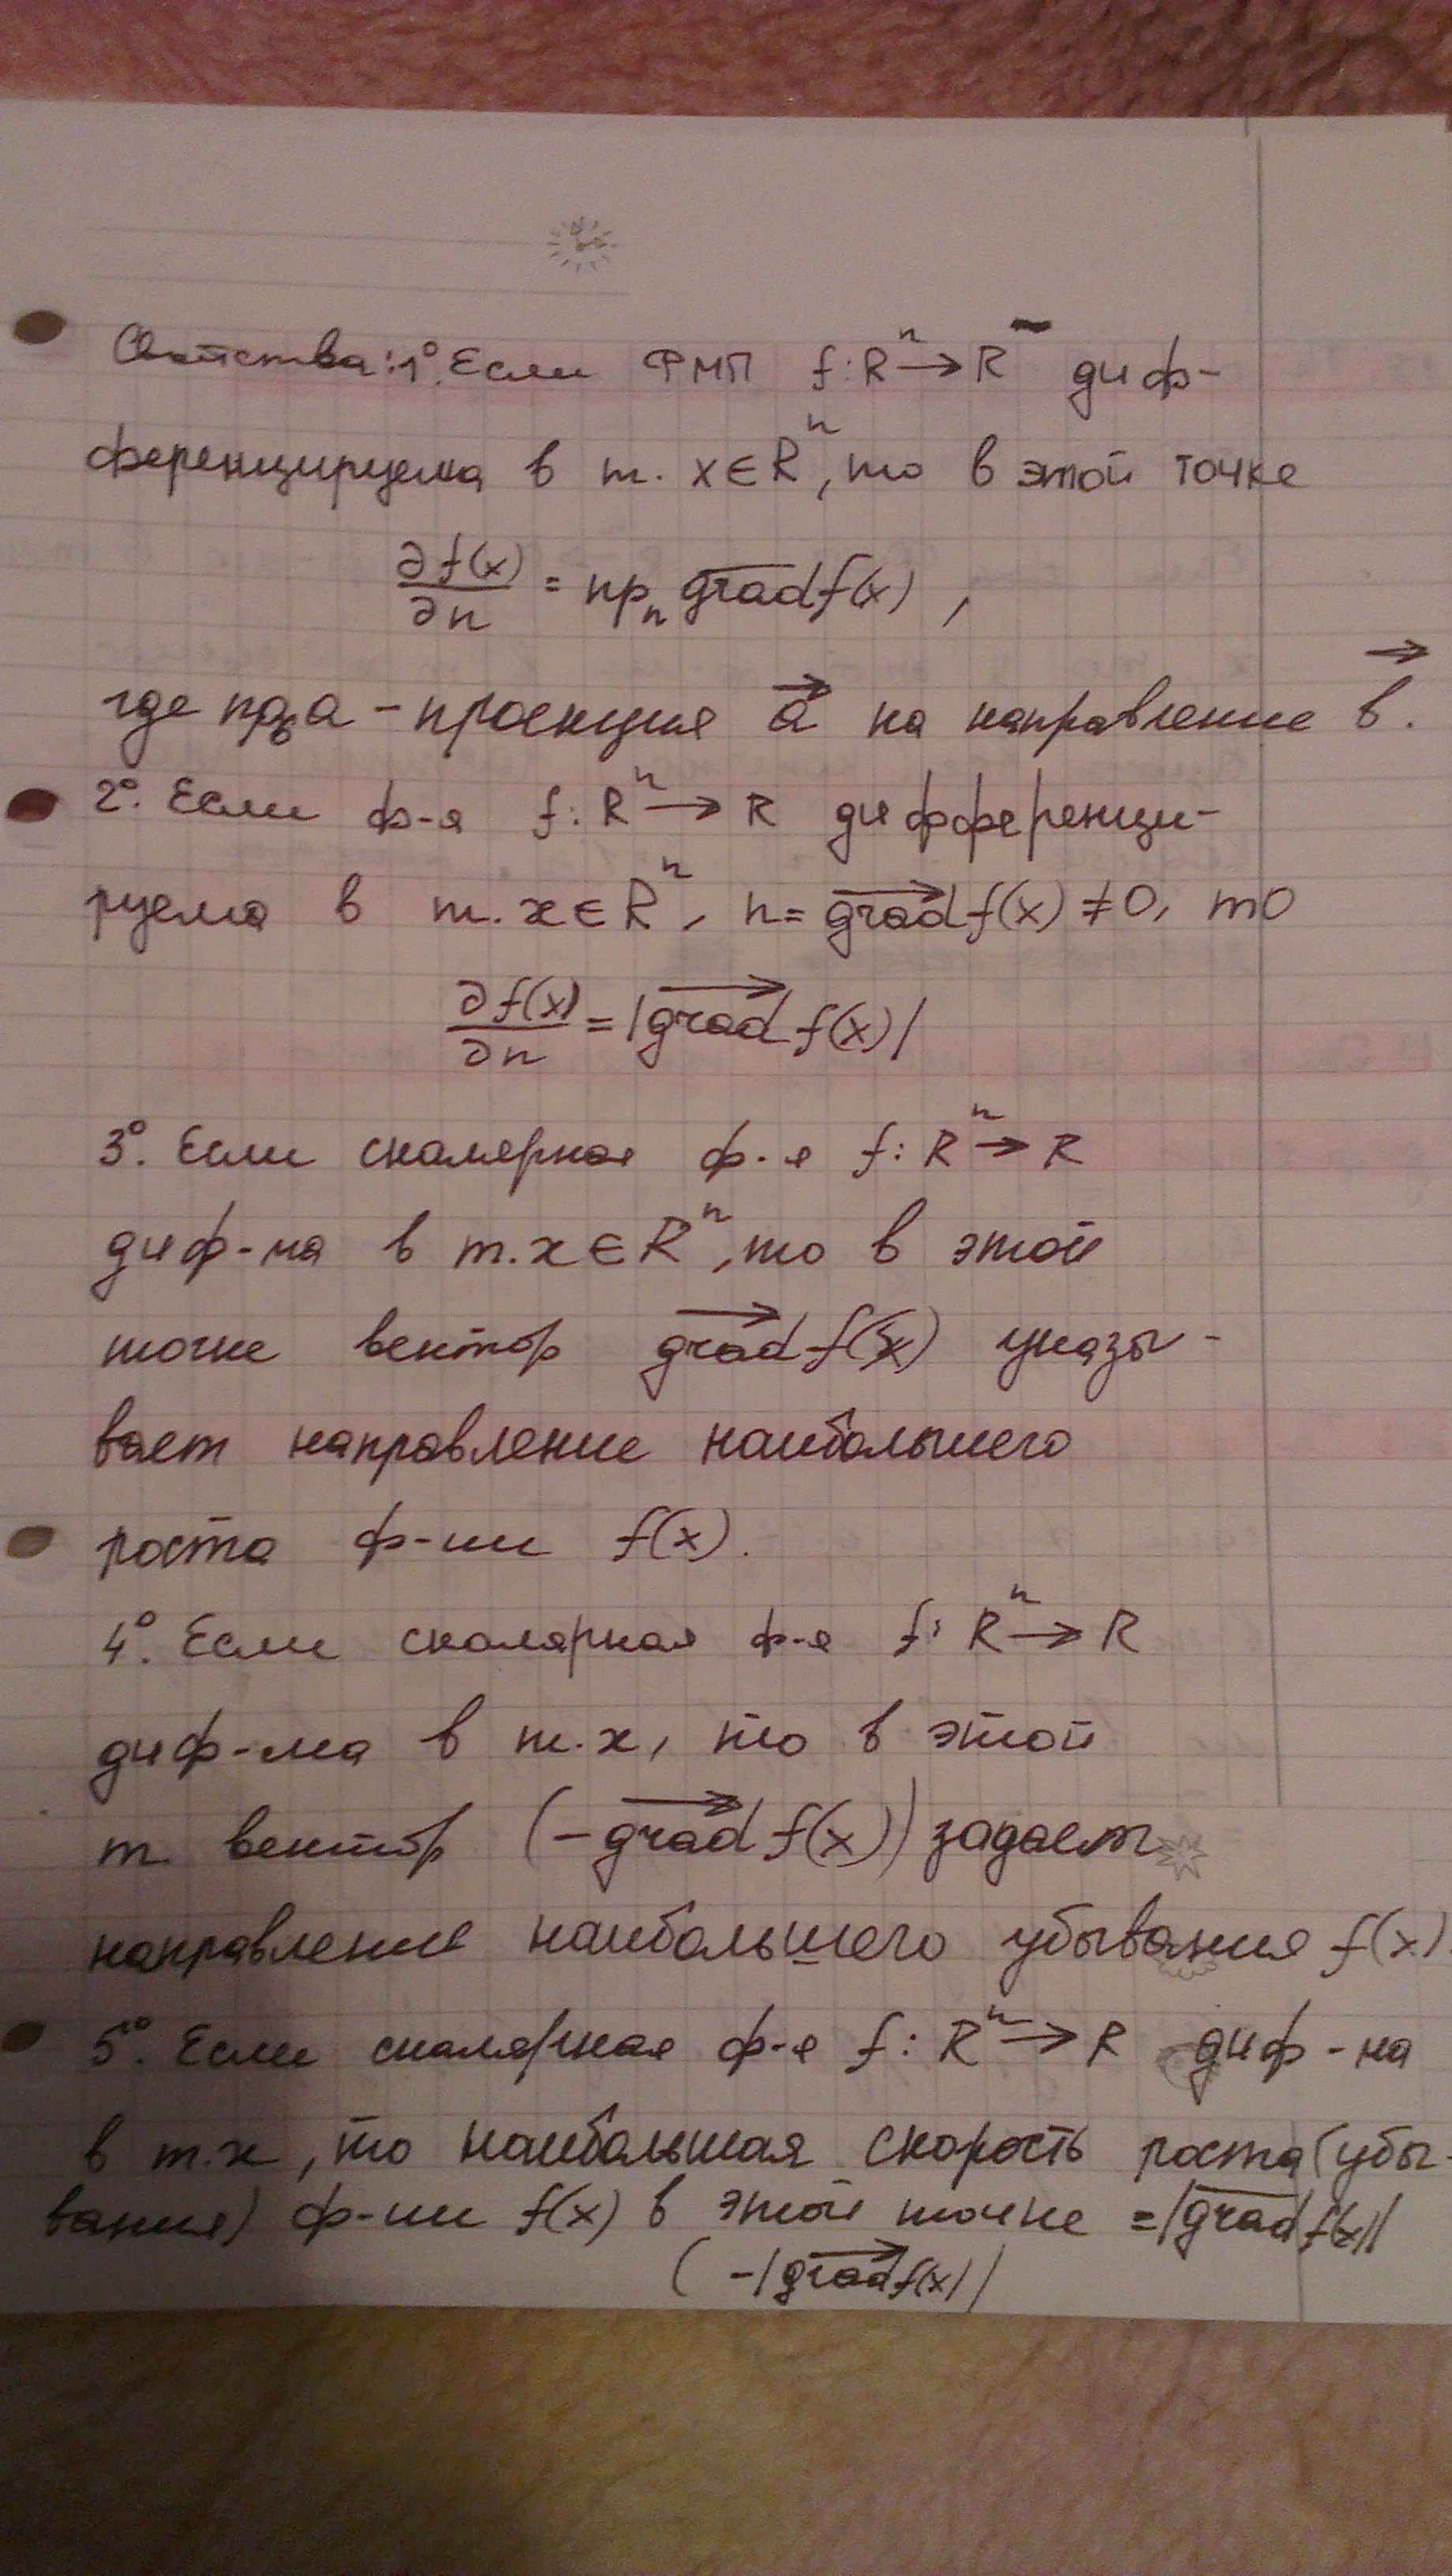 Свойства: 1°. Если ФМП f: Rⁿ → R диф-
ференцируема в т. x ∈ Rⁿ, то в этой точке
∂f(x)/∂n = прₙ grad f(x) ,
где пр_b a – проекция a⃗ на направление b⃗.
2°. Если ф-я f: Rⁿ → R дифференци-
руема в т. x ∈ Rⁿ, n = grad f(x) ≠ 0, то
∂f(x)/∂n = |grad f(x)|
3°. Если скалярная ф-я f: Rⁿ → R
диф-ма в т. x ∈ Rⁿ, то в этой
точке вектор grad f(x) указы-
вает направление наибольшего
роста ф-ии f(x).
4°. Если скалярная ф-я f: Rⁿ → R
диф-ма в т. x, то в этой
т. вектор (-grad f(x)) задает
направление наибольшего убывания f(x).
5°. Если скалярная ф-я f: Rⁿ → R диф-ма
в т. x, то наибольшая скорость роста (убы-
вания) ф-ии f(x) в этой точке = |grad f(x)|
( -|grad f(x)|